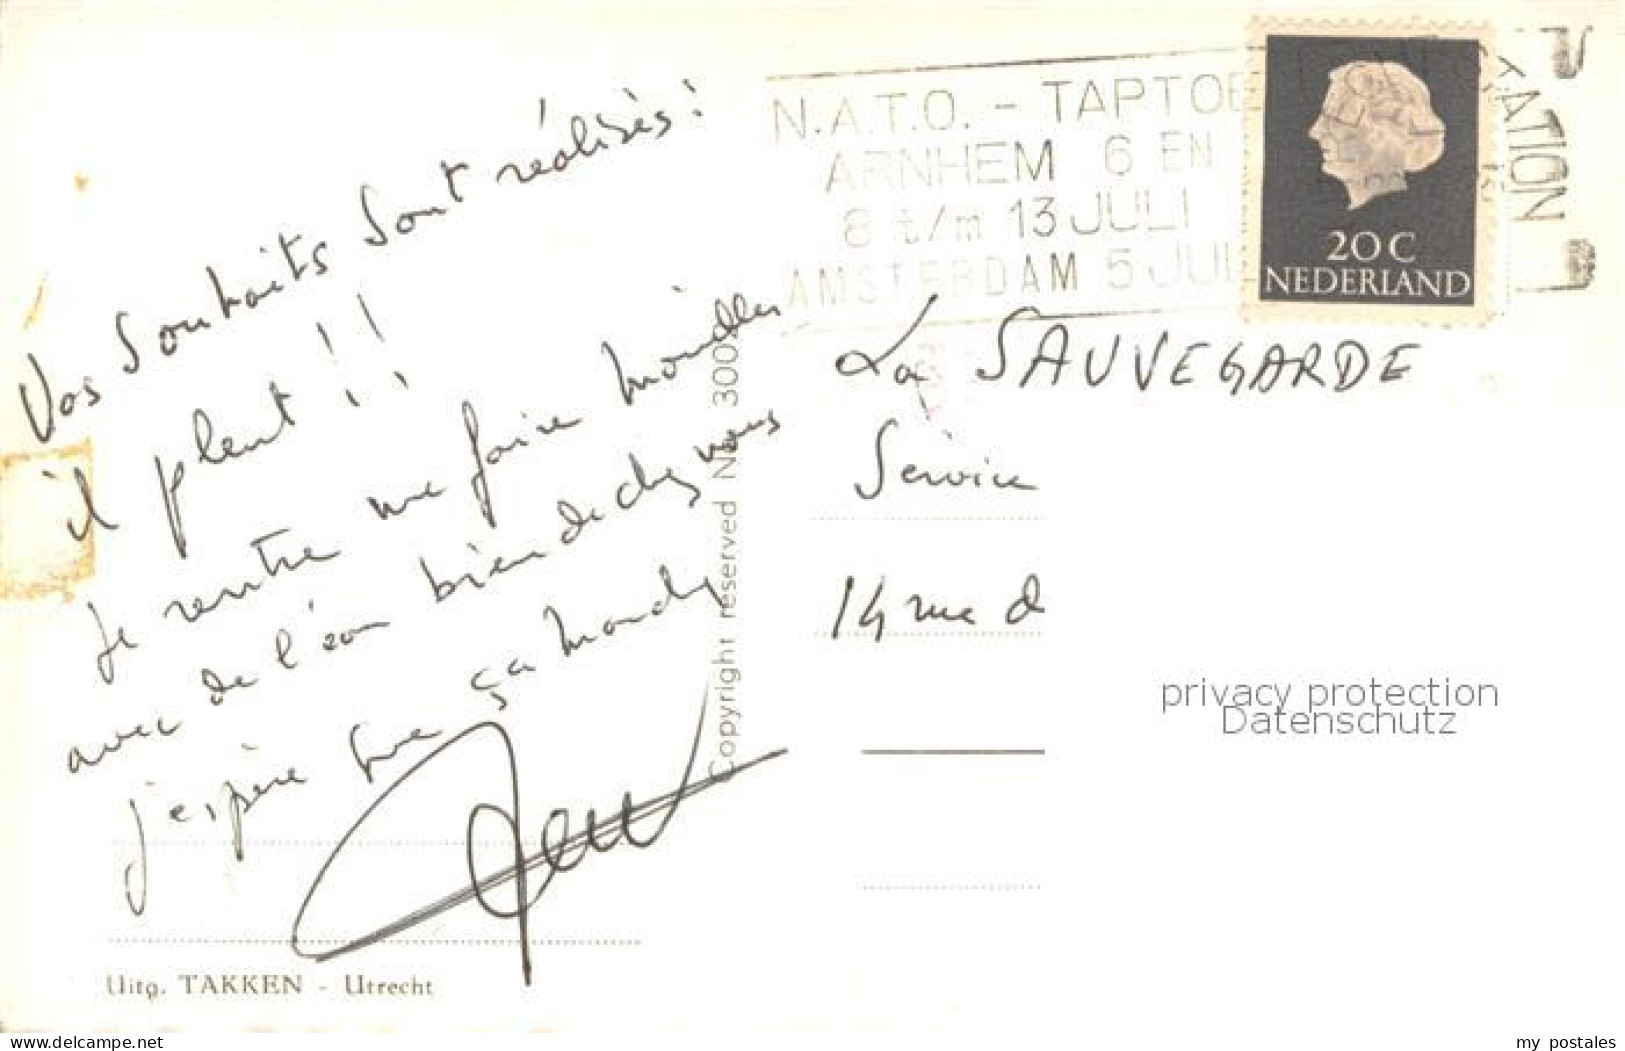 Vos souhaits sont réalisés :
il pleut !!
Je rentre me faire mouiller
avec de l'eau bien de chez nous
j'espère que ça
Uitg. TAKKEN - Utrecht
Copyright reserved No 300
N.A.T.O. - TAPTOE
ARNHEM 6 EN
8 t/m 13 JULI
AMSTERDAM 5 JUL
ATION
20 C
NEDERLAND
La SAUVEGARDE
Service
14 rue d
privacy protection
Datenschutz
delcampe.net
my_postales